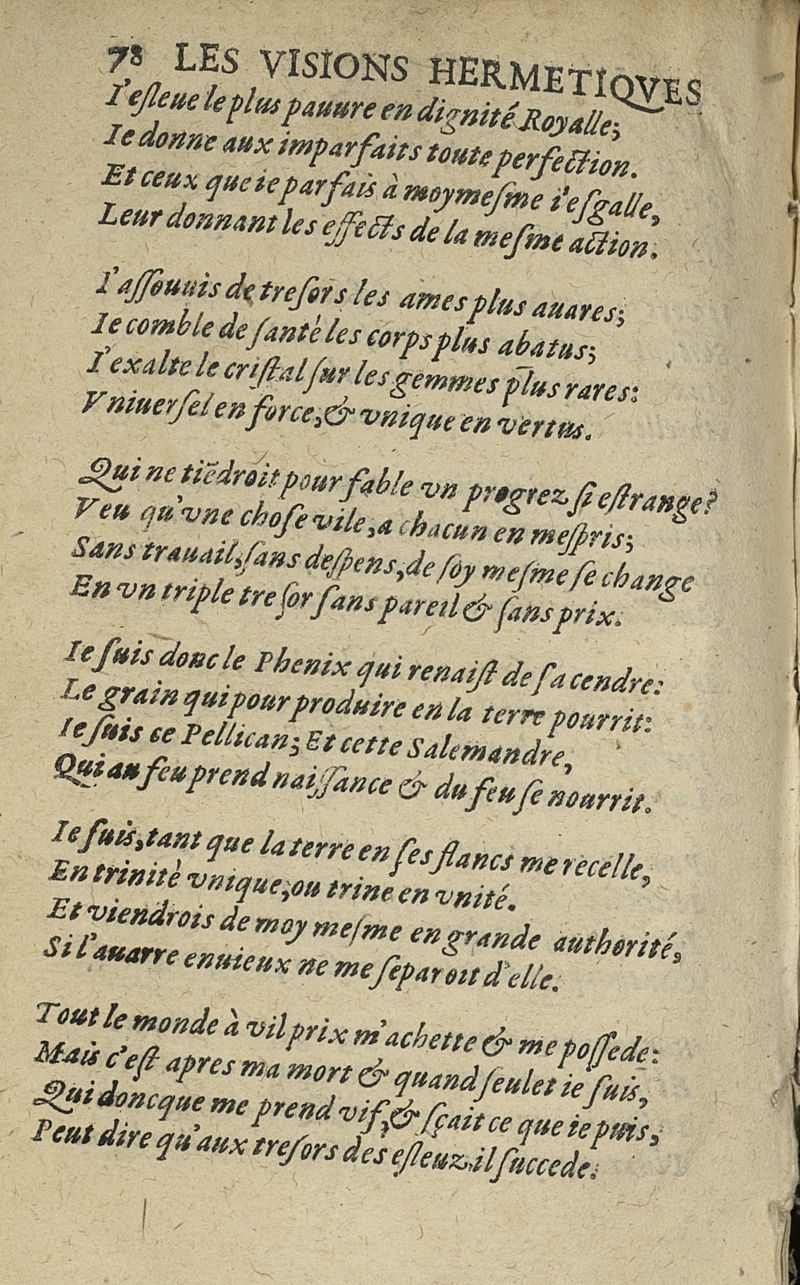 78 LES VISIONS HERMETIQVES
I'eſleue le plus pauure en dignité Royalle;
Ie donne aux imparfaits toute perfection.
Et ceux que ie parfais à moymeſme i'eſgalle,
Leur donnant les effects de la meſme action.
I'aſſouuis de treſors les ames plus auares;
Ie comble de ſanté les corps plus abatus;
I'exalte le criſtal ſur les gemmes plus rares:
Vniuerſel en force, & vnique en vertus.
Qui ne tiẽdroit pour fable vn progrez ſi eſtrange?
Veu qu'vne choſe vile, a chacun en meſpris;
Sans trauail, ſans deſpens, de ſoy meſme ſe change
En vn triple treſor ſans pareil & ſans prix.
Ie ſuis donc le Phenix qui renaiſt de ſa cendre:
Le grain qui pour produire en la terre pourrit:
Ie ſuis ce Pellican; Et cette Salemandre,
Qui au feu prend naiſſance & du feu ſe nourrit.
Ie ſuis, tant que la terre en ſes flancs me recelle,
En trinitè vnique, ou trine en vnité.
Et viendrois de moy meſme en grande authorité,
Si l'auarre enuieux ne me ſeparoit d'elle.
Tout le monde à vil prix m'achette & me poſſede:
Mais c'eſt apres ma mort & quand ſeulet ie ſuis,
Qui doncque me prend vif, & ſçait ce que ie puis,
Peut dire qu'aux treſors des eſleuz, il ſuccede.